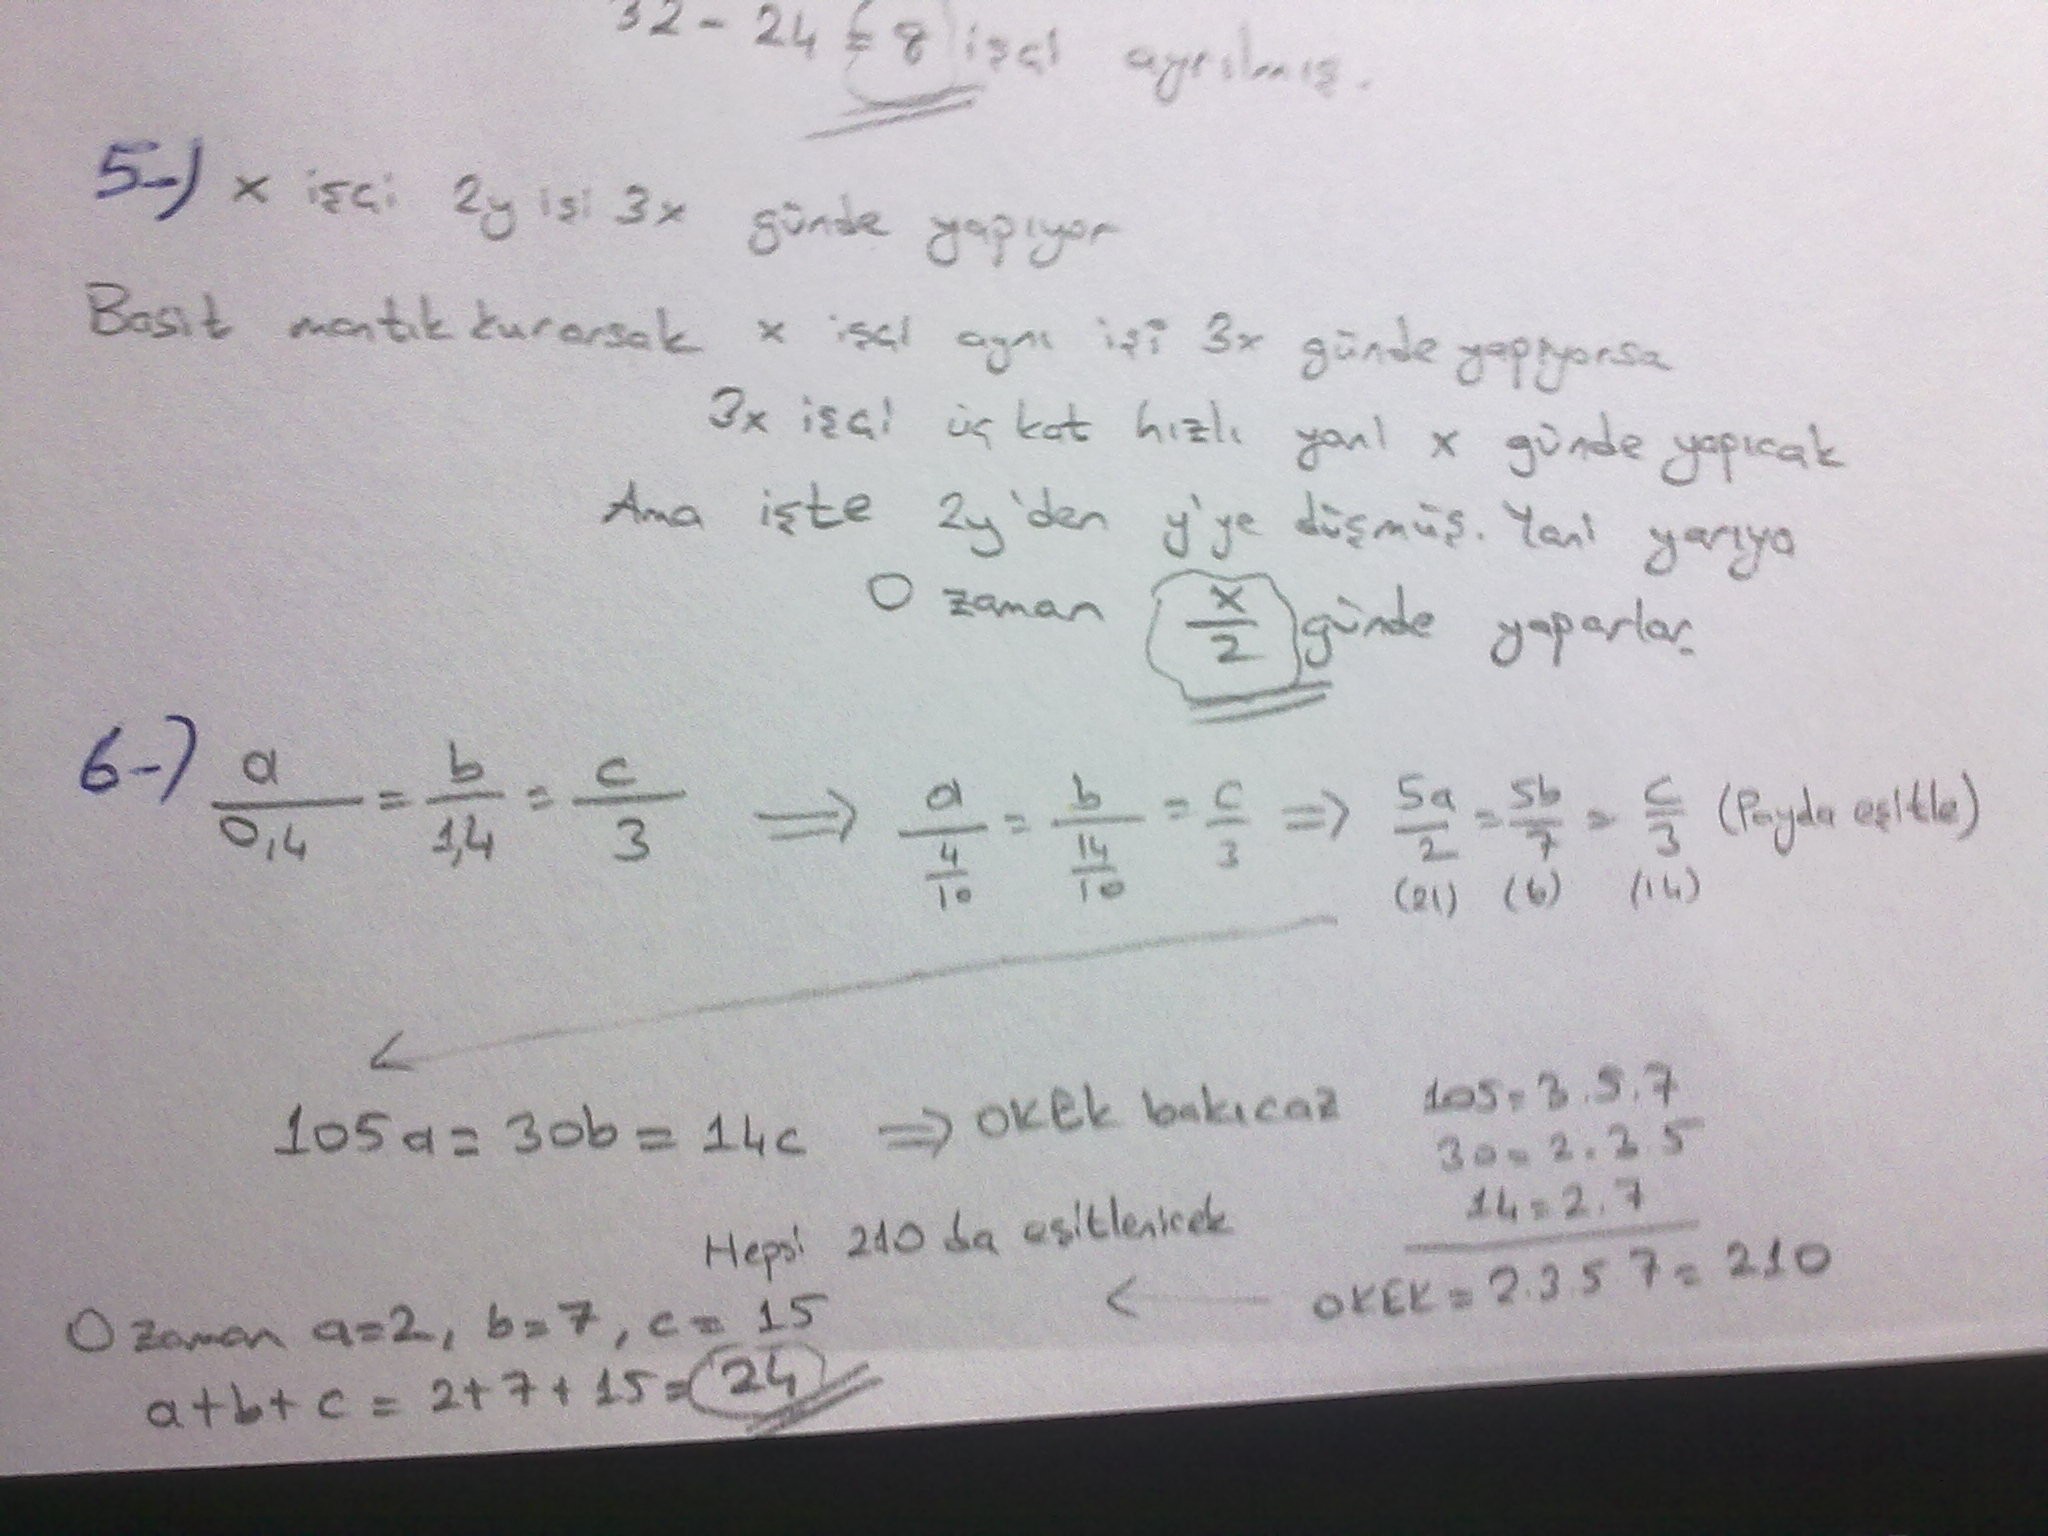 32 - 24 = 8 işçi ayrılmış.
5-) x işçi 2y işi 3x günde yapıyor
Basit mantık kurarsak x işçi aynı işi 3x günde yapıyorsa
3x işçi üç kat hızlı yani x günde yapıcak
Ama işte 2y'den y'ye düşmüş. Yani yarıya
O zaman x/2 günde yaparlar.
6-) a/0,4 = b/1,4 = c/3 ⇒ a/(4/10) = b/(14/10) = c/3 ⇒ 5a/2 = 5b/7 = c/3 (Payda eşitle)
(21) (6) (14)
105a = 30b = 14c ⇒ OKEK bakıcaz
105 = 3.5.7
30 = 2.3 5
14 = 2.7
OKEK = 2.3.5 7 = 210
Hepsi 210 da eşitlenicek
O zaman a=2, b=7, c= 15
a+b+c = 2+7+15=24